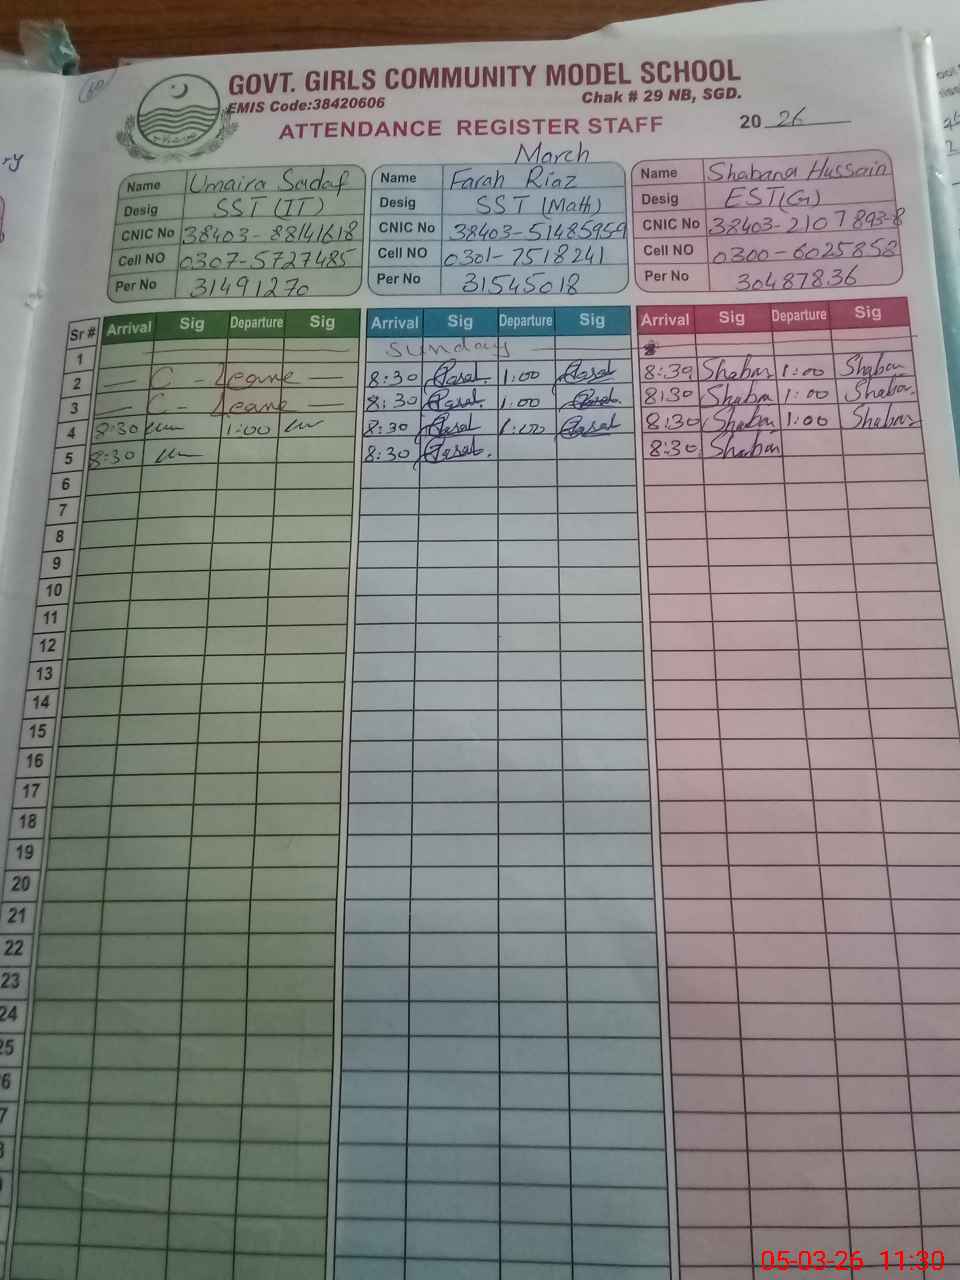 60
GOVT. GIRLS COMMUNITY MODEL SCHOOL
EMIS Code:38420606 Chak # 29 NB, SGD.
ATTENDANCE REGISTER STAFF 20 26
March
Name Umaira Sadaf
Desig SST (IT)
CNIC No 38403-88141618
Cell NO 0307-5727485
Per No 31491270
Name Farah Riaz
Desig SST (Math)
CNIC No 38403-51485959
Cell NO 0301-7518241
Per No 31545018
Name Shabana Hussain
Desig EST(G)
CNIC No 38403-2107893-8
Cell NO 0300-6025858
Per No 30487836
Sr # Arrival Sig Departure Sig Arrival Sig Departure Sig Arrival Sig Departure Sig
1 Sunday
2 C - Leave 8:30 1:00 8:30 Shaban 1:00 Shaban
3 C - Leave 8:30 1:00 8:30 Shaban 1:00 Shaban
4 8:30 1:00 8:30 1:00 8:30 Shaban 1:00 Shaban
5 8:30 8:30 8:30 Shaban
6
7
8
9
10
11
12
13
14
15
16
17
18
19
20
21
22
23
24
25
6
7
05-03-26 11:30